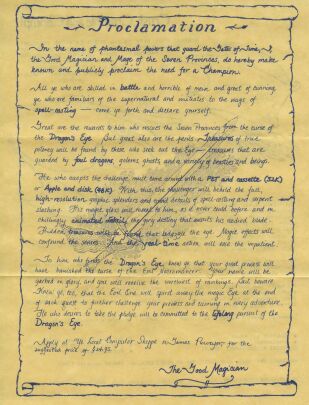 Proclamation
In the name of phantasmal powers that guard the Gates of Time, I,
the Good Magician and Mage of the Seven Provinces, do hereby make
known and publicly proclaim the need for a Champion.
All ye who are skilled in battle and horrible of mien and great of cunning,
ye who are familiars of the supernatural and initiates to the ways of
spell-casting — come ye forth and declare yourself.
Great are the rewards to him who rescues the Seven Provinces from the curse of
the Dragon's Eye. But great also are the perils. Treasures of true
potency will be found by those who seek out the Eye — treasures that are
guarded by foul dragons, golems, ghouls and a variety of beasties and beings.
He who accepts the challenge must come armed with a PET and cassette (32K)
or Apple and disk (48K). With this, the challenger will behold the full,
high-resolution graphic splendors and vivid details of spell casting and superb
clothing. He might
chillingly animated detail,
Hidden treasures will be found that
confound the and the real-time action will the impatient.
To him who finds the Dragon's Eye, know ye that your great prowess will
have banished the curse of the Evil Necromancer. Your name will be
, and you will receive the worthiest of rankings. But beware.
Know ye, too, that the Evil One will spirit away the magic Eye at the end
of each quest to further challenge your prowess and cunning in every adventure.
He who desires to take the pledge will be committed to the lifelong pursuit of the
Dragon's Eye.
Apply at Ye Local Computer Shoppe or Games Purveyor for the
suggested price of $24.95.
The Good Magician